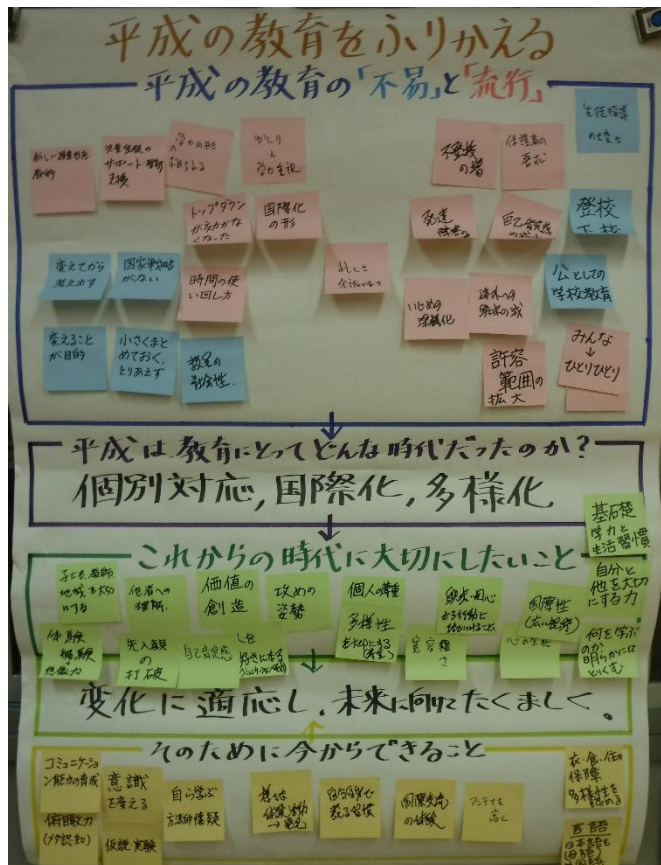 平成の教育をふりかえる
平成の教育の「不易」と「流行」
生徒指導
児童生徒の
サポート
支援
学力の形
ゆとり
と
学力重視
不登校
の増
保護者の
要求
トップダウン
が効かなく
なった
国際化
の形
発達
障害
自己肯定感
登校
変えてから
考え出す
国家戦略
がない
時間の使
い回し方
新しさ
いじめの
深刻化
海外への
公としての
学校教育
変えること
が目的
小さくまと
めておく、
とりあえず
教員の
社会性
許容
範囲の
拡大
みんな
↓
ひとりひとり
平成は、教育にとってどんな時代だったのか?
個別対応,国際化,多様化
これからの時代に大切にしたいこと
基礎
学力と
生活習慣
子ども、教師
地域を大切
にする
他者への
理解
価値の
創造
攻めの
姿勢
個人の尊重
多様性
を大切にする
国際性
(広い視野)
自分と
他を大切
にする力
体験
想像力
先入観
の
打破
自己肯定感
好きになる
寛容
さ
心の
何を学ぶ
のか
明らかに
とりくむ
変化に適応し、未来に向けてたくましく。
そのために今からできること
コミュニケーショ
ン能力の育成
意識
を変える
自ら学ぶ
方法的懐疑
様々な
体験活動
自分自身で
考える習慣
国際交流
の体験
アンテナを
高く
衣・食・住の
保障
多様性を
認める
俯瞰力
(メタ認知)
仮説実験
言語
日本語も
(母語)